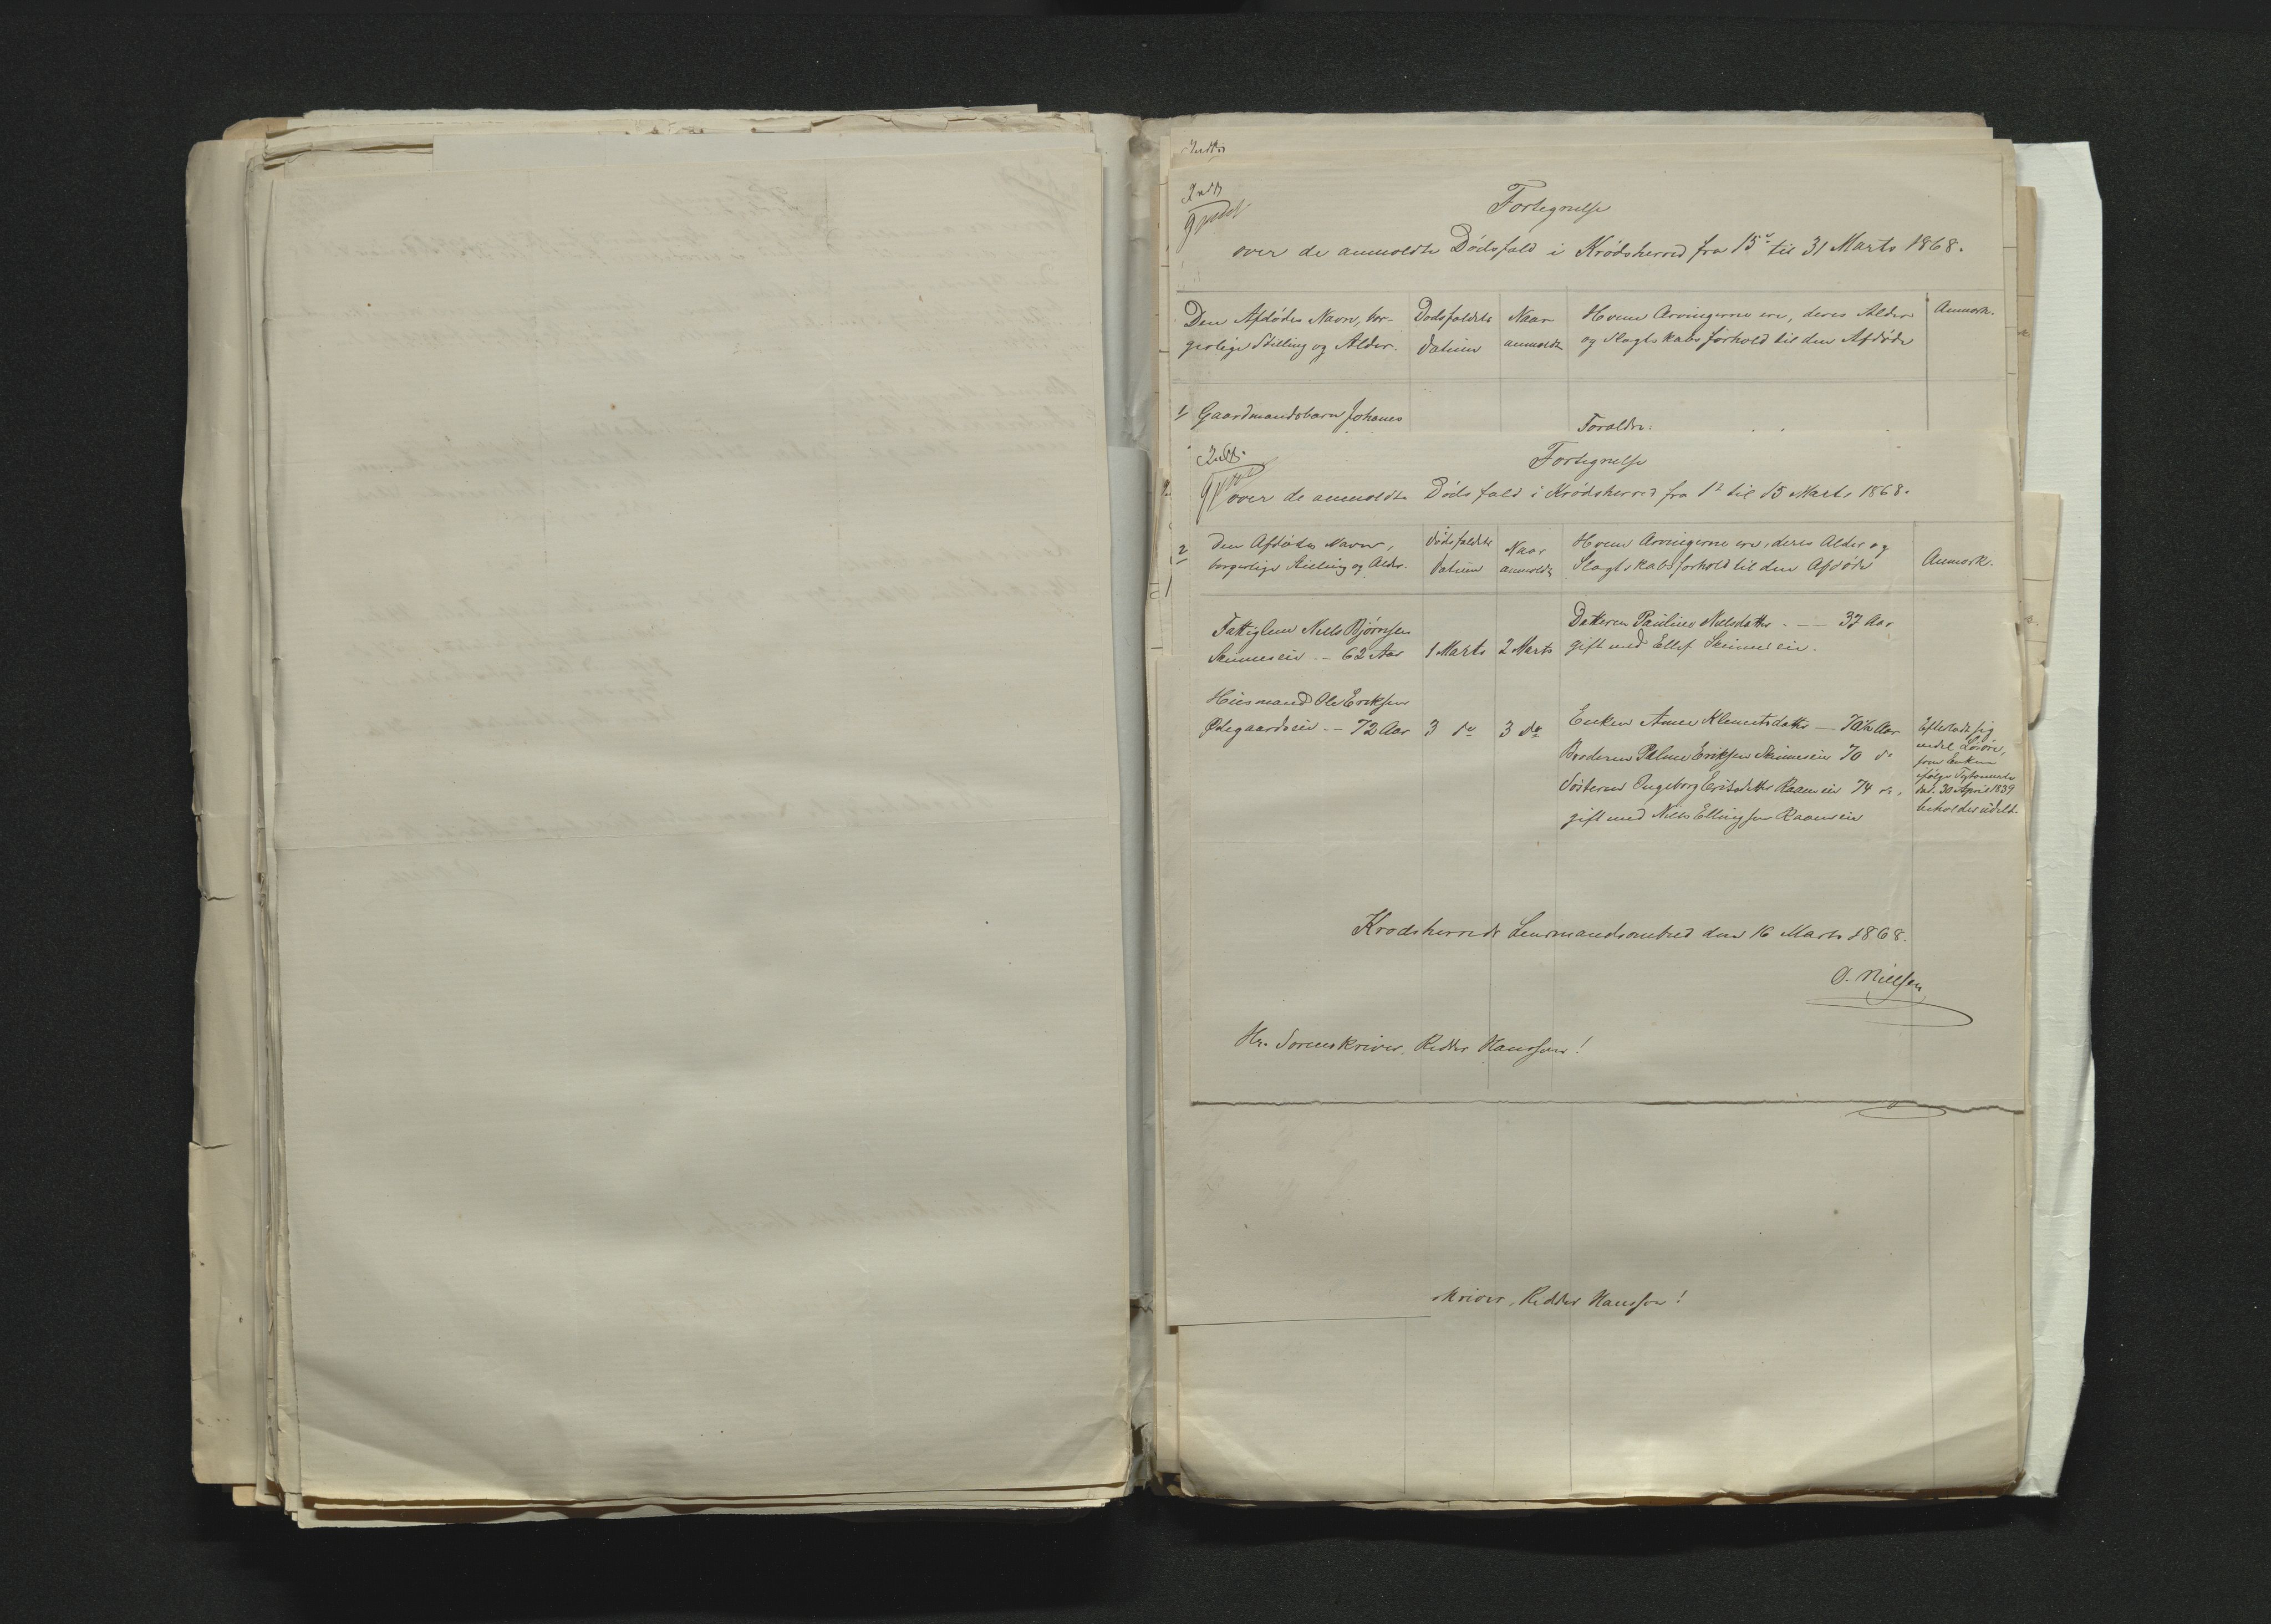 Fortegnelse
over de anmeldte Dødsfald i Krødsherred fra 15de til 31 Marts 1868.
Den Afdødes Navn, bor-
gerlige Stilling og Alder.
Dødsfaldets
Datum
Naar
anmeldt
Hvem Arvingerne ere, deres Alder
og Slægtskabsforhold til den Afdøde
Anmærk.
1/ Gaardmandsbarn Johannes
Forældre:
Fortegnelse
over de anmeldte Dødsfald i Krødsherred fra 1ste til 15 Marts 1868.
Den Afdødes Navn,
borgerlige Stilling og Alder.
Dødsfaldets
Datum
Naar
anmeldt
Hvem Arvingerne ere, deres Alder og
Slægtskabsforhold til den Afdøde
Anmærk.
Fattiglem Niels Bjørnsen
Skinneseie -- 62 Aar
1 Marts
2 Marts
Datteren Pauline Nielsdatter --- 37 Aar
gift med Ellef Skinneseie.
Huusmand Ole Eriksen
Ødegaardseie -- 72 Aar
3 do
3 do
Enken Anne Klemetsdatter — 70½ Aar
Broderen Palme Eriksen Skinneseie 70 do
Søsteren Ingeborg Eriksdatter Raaeneie 74 do,
gift med Niels Ellingsen Raaeneie
Efterlod sig
endel Løsøre,
som Enken
ifølge Testamente
dat. 30 April 1839
beholder udelt.
Krødsherreds Lensmandsombud den 16 Marts 1868.
O. Nielsen
Hr. Sorenskriver, Ridder Hansson!
skriver, Ridder Hansson!